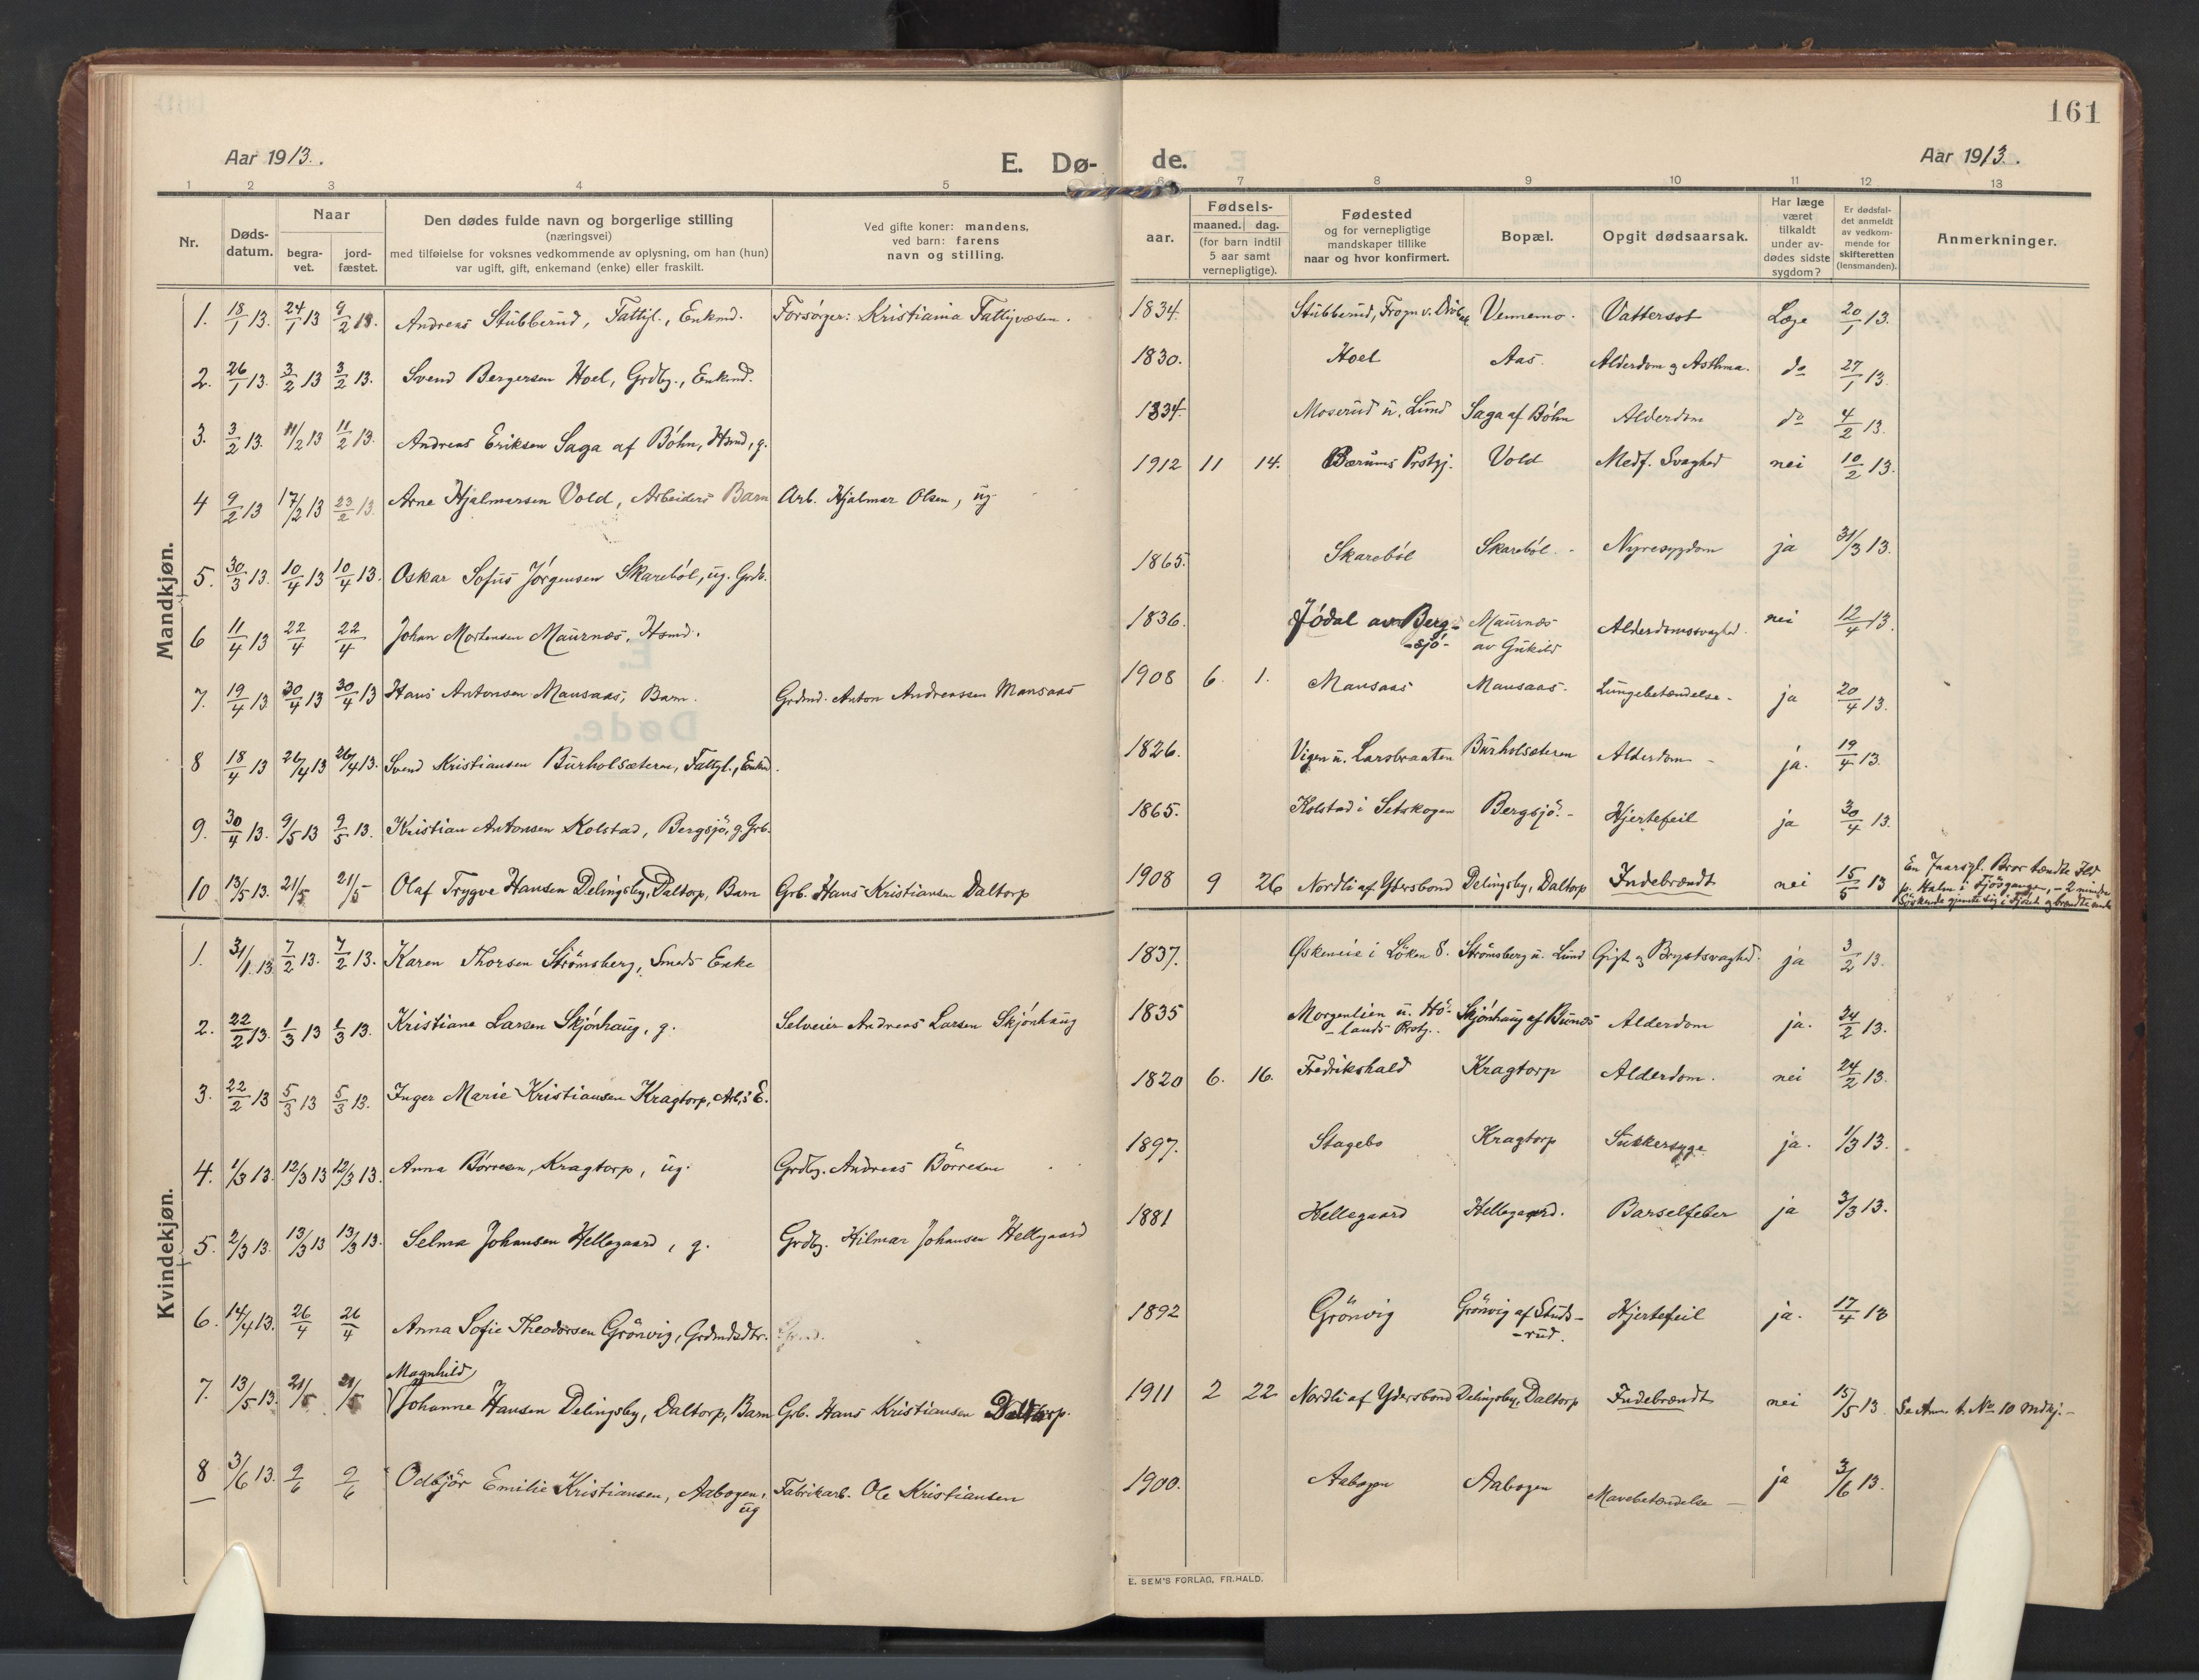 161
Aar 1913.
E. Dø-
de.
Aar 1913.
1 2 3 4 5 6 7 8 9 10 11 12 13
Nr.
Døds-
datum.
Naar
begra-
vet.
jord-
fæstet.
Den dødes fulde navn og borgerlige stilling
(næringsvei)
med tilføielse for voksnes vedkommende av oplysning, om han (hun)
var ugift, gift, enkemand (enke) eller fraskilt.
Ved gifte koner: mandens,
ved barn: farens
navn og stilling.
Fødsels-
aar.
maaned. dag.
(for barn indtil
5 aar samt
vernepligtige).
Fødested
og for vernepligtige
mandskaper tillike
naar og hvor konfirmert.
Bopæl.
Opgit dødsaarsak.
Har læge
været
tilkaldt
under av-
dødes sidste
sygdom?
Er dødsfal-
det anmeldt
av vedkom-
mende for
skifteretten
(lensmanden).
Anmerkninger.
Mandkjøn.
1. 18/1 13. 24/1 13 9/2 13. Andreas Stubberud, Fattigl., Enkmd. Forsörger: Kristiania Fattigvæsen. 1834. Stubberud, Frogn v. Dröbak Vennemo. Vattersot Læge 20/1 13.
2. 26/1 13. 3/2 13 3/2 13. Svend Bergersen Hoel, Grdbg., Enkmd. 1830. Hoel Aas. Alderdom og Asthma. do 27/1 13.
3. 3/2 13. 11/2 13 11/2 13. Andreas Eriksen Saga af Böhn, Hsmd, g. 1834. Moserud u. Lund Saga af Böhn Alderdom do 4/2 13.
4 9/2 13 17/2 13 23/2 13. Arne Hjalmarsen Vold, Arbeiders Barn Arb. Hjalmar Olsen, ug 1912 11 14. Bærums Prstgj. Vold Medf. Svaghed nei 10/2 13.
5. 30/3 13. 10/4 13 10/4 13. Oskar Sofus Jörgensen Skareböl, ug. Grdb. 1865. Skareböl Skareböl. Nyresygdom ja 31/3 13.
6 11/4 13 22/4 22/4 Johan Mortensen Maurnæs, Hsmd. 1836. Jödal av Berg-
-sjö- Maurnæs
av Gukild Alderdomssvaghed. nei 12/4 13.
7. 19/4 13. 30/4 13 30/4 13 Hans Antonsen Mansaas, Barn. Grdmd. Anton Andreassen Mansaas 1908 6. 1. Mansaas Mansaas. Lungebetændelse. ja 20/4 13.
8 18/4 13 26/4 13 26/4 13. Svend Kristiansen Burholsæteren, Fattgl., Enkm. 1826. Vigen u. Larsbraaten Burholsæteren Alderdom ja. 19/4 13.
9. 30/4 13. 9/5 13 9/5 13. Kristian Antonsen Kolstad, Bergsjö, g. Grb. 1865. Kolstad i Setskogen Bergsjö. Hjertefeil ja 30/4 13.
10 13/5 13. 21/5 21/5 Olaf Trygve Hansen Delingsby, Daltorp, Barn Grb. Hans Kristiansen Daltorp 1908 9 26 Nordli af Ydersbond Delingsby, Daltorp Indebrændt nei 15/5 13 En 7aarsgl. Bror tændte Ild
p. Halm i Fjösgangen, – 2 mindre
Söskende gjemte sig i Fjöset og brændte inde
Kvindekjøn.
1. 31/1 13 7/2 13. 7/2 13. Karen Thorsen Strömsberg, Smeds Enke 1837. i Löken S. Strömsberg u. Lund Gigt og Brystsvaghed. ja 3/2 13.
2. 22/2 13. 1/3 13 1/3 13. Kristiane Larsen Skjönhaug, g. Selveier Andreas Larsen Skjönhaug 1835 Morgenlien u. Hö-
-lands Prstg. Skjönhaug af Bunes Alderdom ja. 24/2 13.
3. 22/2 13 5/3 13 5/3 13. Inger Marie Kristiansen Kragtorp, Arb.s E. 1820 6. 16. Fredrikshald Kragtorp Alderdom. nei 24/2 13.
4. 1/3 13. 12/3 13 12/3 13. Anna Börresen, Kragtorp, ug. Grdbg. Andreas Börresen 1897. Stagebo Kragtorp Sukkersyge ja. 1/3 13.
5. 2/3 13. 13/3 13 13/3 13. Selma Johansen Hellegaard, g. Grdbg. Hilmar Johansen Hellegaard 1881 Hellegaard Hellegaard. Barselfeber ja 3/3 13.
6. 14/4 13. 26/4 26/4 Anna Sofie Theodorsen Grönvig, Grdmdsdtr. 1892 Grönvig Grönvig af Studs-
-rud. Hjertefeil ja. 17/4 13
7. 13/5 13. 21/5 21/5 Magnhild
Johanne Hansen Delingsby, Daltorp, Barn Grb. Hans Kristiansen Daltorp. 1911 2 22 Nordli af Ydersbond Delingsby, Daltorp Indebrændt nei 15/5 13 Se Anm. t. No 10 mdkj.
8 3/6 13. 9/6 9/6 Odbjör Emilie Kristiansen, Aabogen,
ug Fabrikarb. Ole Kristiansen 1900. Aabogen Aabogen Mavebetændelse ja 3/6 13.
E. SEM'S FORLAG, FR.HALD.